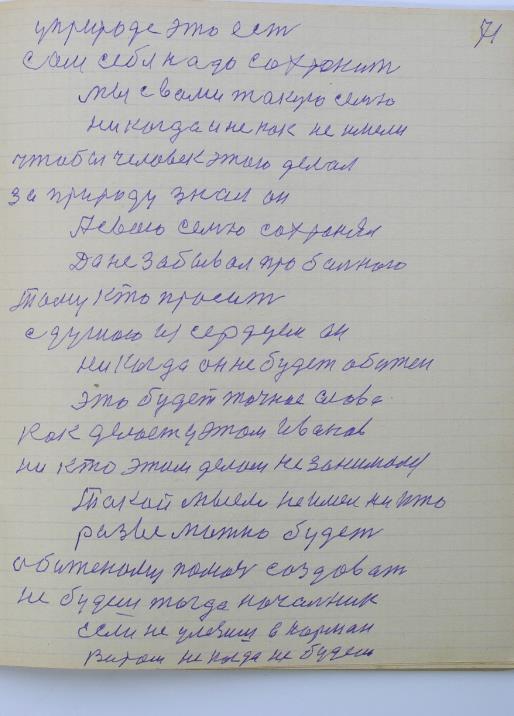 71
у природе это ест
сам себя надо сохронит
мы с вами такую семю
никогда и не как не имели
чтобы человек этого делал
за природу знал он
А свою семю сохронял
Да не забывал про балного
Тому кто просит
с душою из сердцем он
ни когда он не будет обижен
это будет точное слова
как делает у этом Иванов
ни кто этим делом не занимался
Такой мысли не имел ни кто
разве можно будет
обиженому помоч создоват
не будеш тогда началник
если не улезиш в карман
не когда не будеш